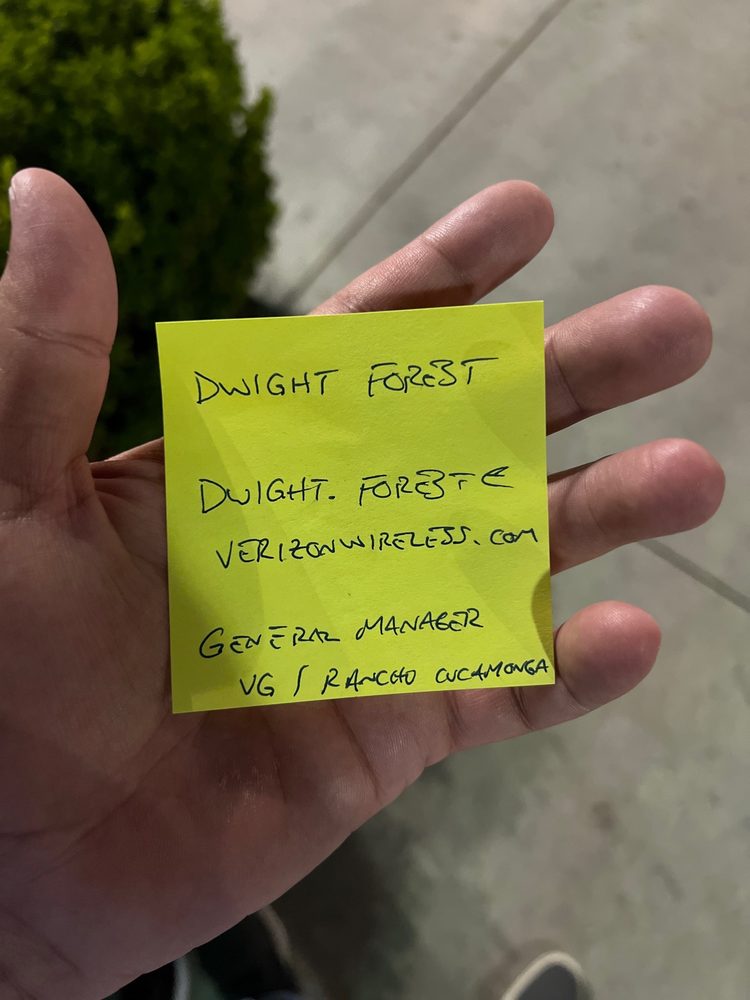 DWIGHT FOREST
DWIGHT. FOREST@
VERIZONWIRELESS.COM
GENERAL MANAGER
VG / RANCHO CUCAMONGA